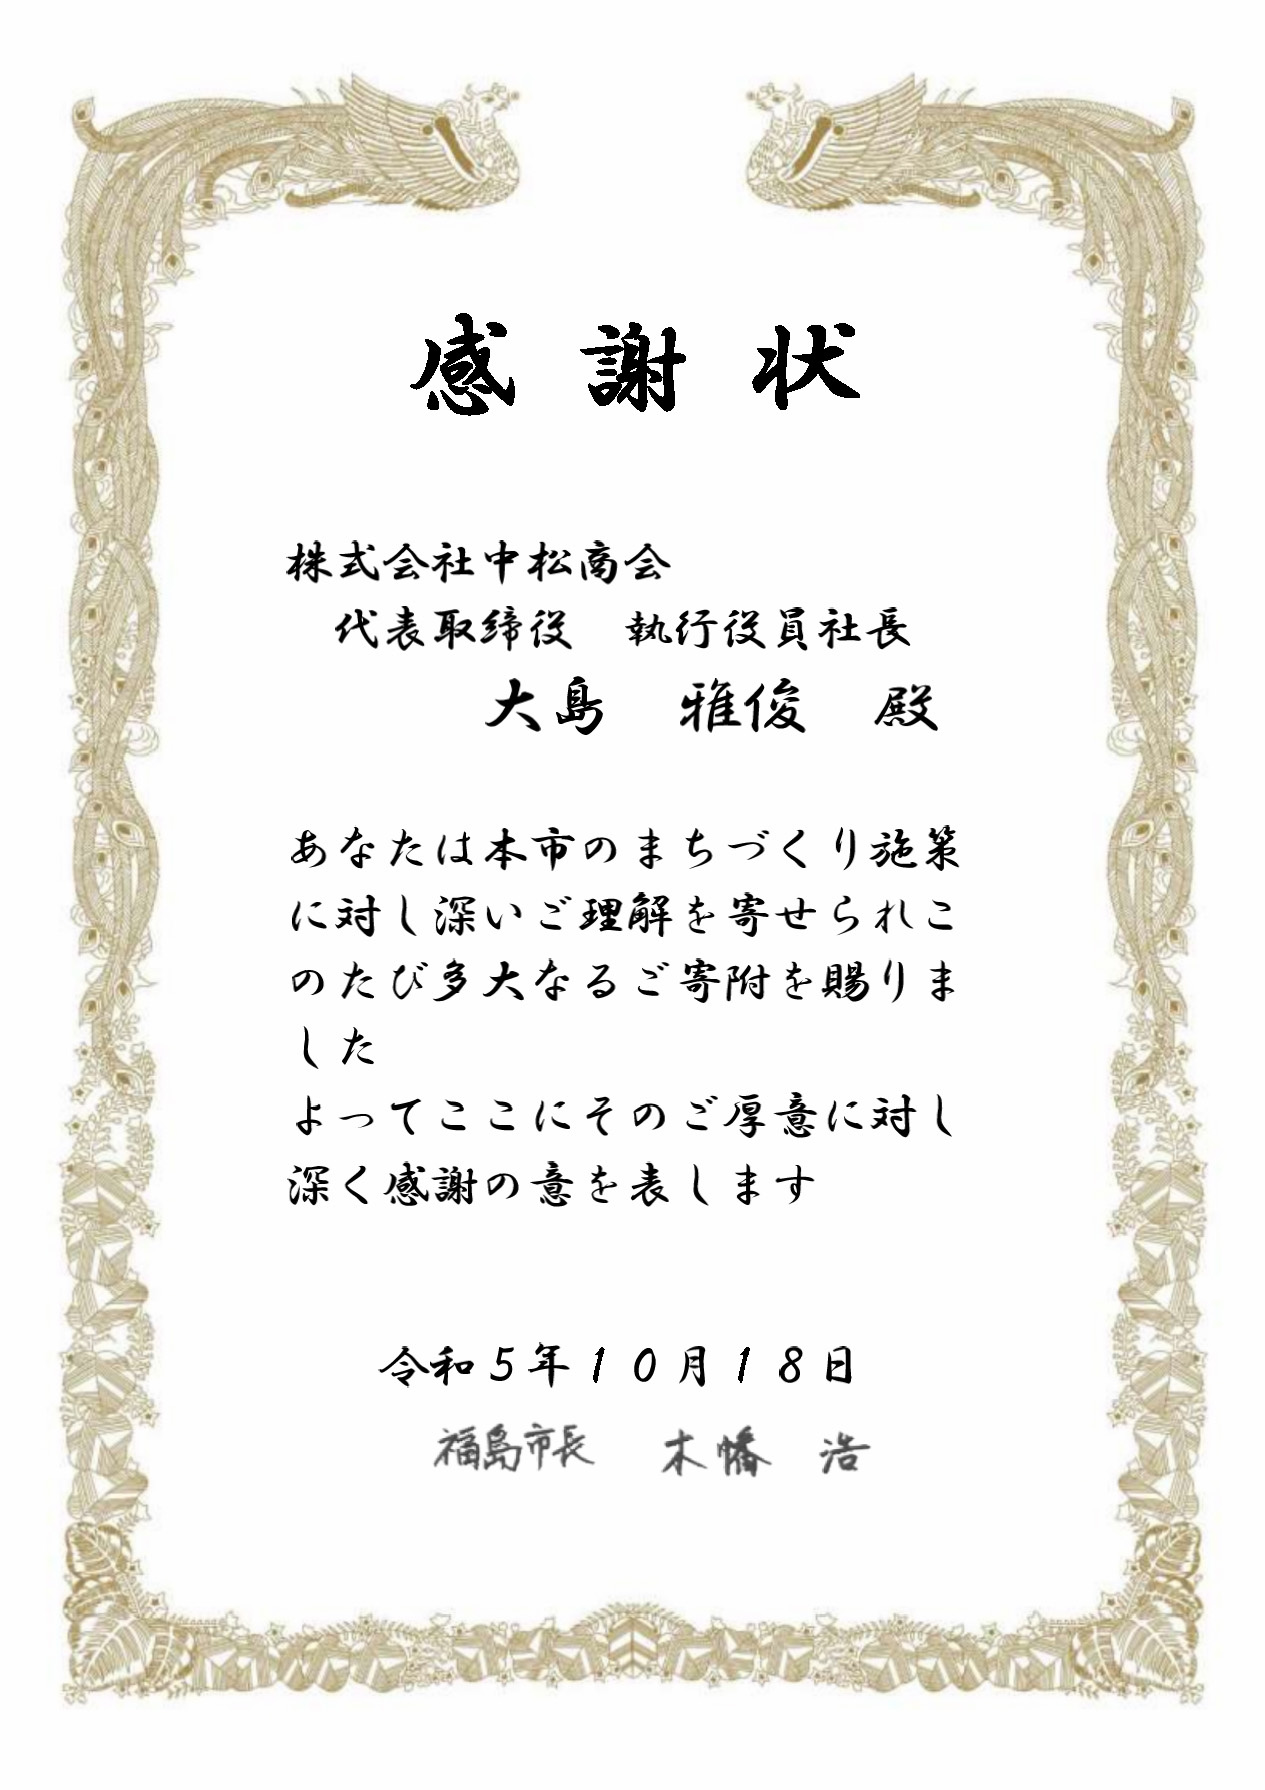 感謝状
株式会社中松商会
代表取締役　執行役員社長
大島　雅俊　殿
あなたは本市のまちづくり施策
に対し深いご理解を寄せられこ
のたび多大なるご寄附を賜りま
した
よってここにそのご厚意に対し
深く感謝の意を表します
令和５年１０月１８日
福島市長　木幡　浩